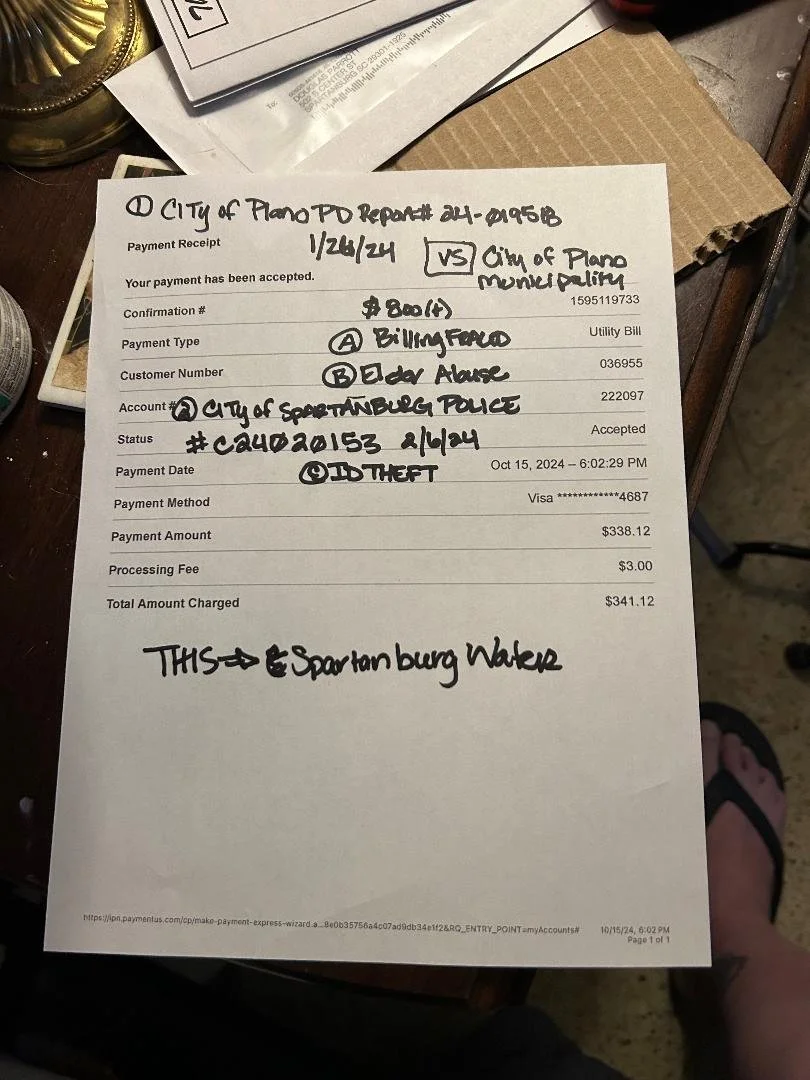 To:
DOUGLAS PARROTT
502 S CENTER ST
SPARTANBURG SC 29301-1925
① CITY of Plano PD Report# 24-019513
Payment Receipt
1/26/24
VS City of Plano
municipality
Your payment has been accepted.
Confirmation # $800(+) 1595119733
Payment Type Ⓐ Billing FRAUD Utility Bill
Customer Number Ⓑ Elder Abuse 036955
Account # ② CITY of SPARTANBURG POLICE 222097
Status # C24020153 2/6/24 Accepted
Payment Date Ⓒ ID THEFT Oct 15, 2024 – 6:02:29 PM
Payment Method Visa ************4687
Payment Amount $338.12
Processing Fee $3.00
Total Amount Charged $341.12
THIS⇒ Spartanburg Water
https://ipn.paymentus.com/cp/make-payment-express-wizard.a...8e0b35756a4c07ad9db34e1f2&RQ_ENTRY_POINT=myAccounts# 10/15/24, 6:02 PM
Page 1 of 1